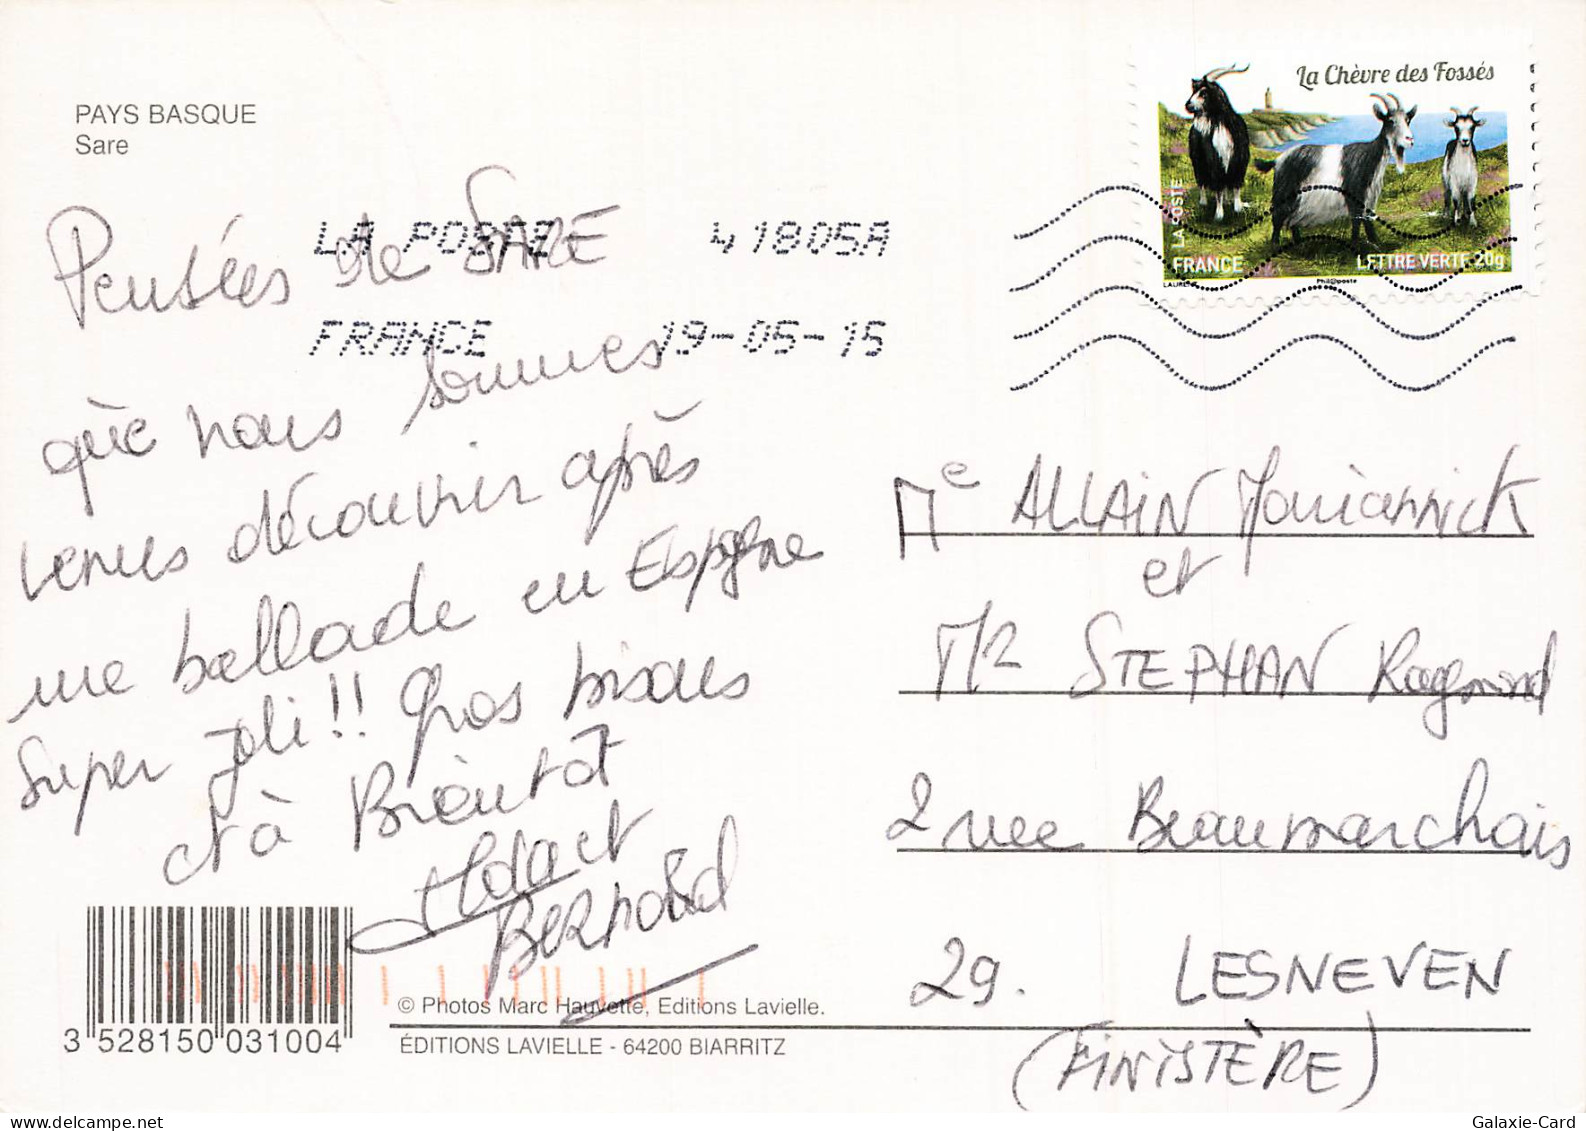 PAYS BASQUE
Sare
La Chèvre des Fossés
LA POSTE
FRANCE
LETTRE VERTE 20g
Phil@poste
LA POSTE 41805A
FRANCE 19-05-15
Pensées de SARE
que nous sommes
venus découvrir après
une ballade en Espgne
super joli!! Gros bisous
et à Bientôt
et
BERNARD
Me ALLAIN Mariannick
et
Mr STEPHAN Raymond
2 rue Beaumarchais
29. LESNEVEN
(FINISTÈRE)
3 528150 031004
© Photos Marc Hauvette, Editions Lavielle.
ÉDITIONS LAVIELLE - 64200 BIARRITZ
Galaxie-Card